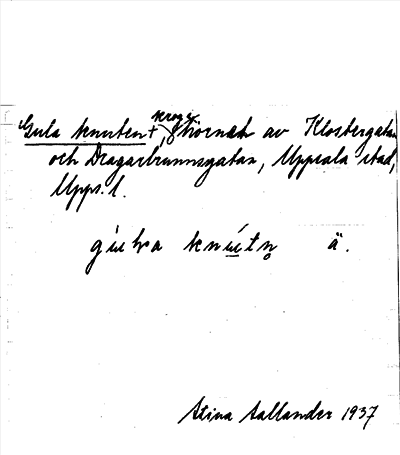 Gula knuten +, krog i hörnet av Klostergatan
och Dragarbrunnsgatan, Uppsala stad,
Upps. l.
gu̇lra knu̇tn̥ ä.
Stina Sallander 1937